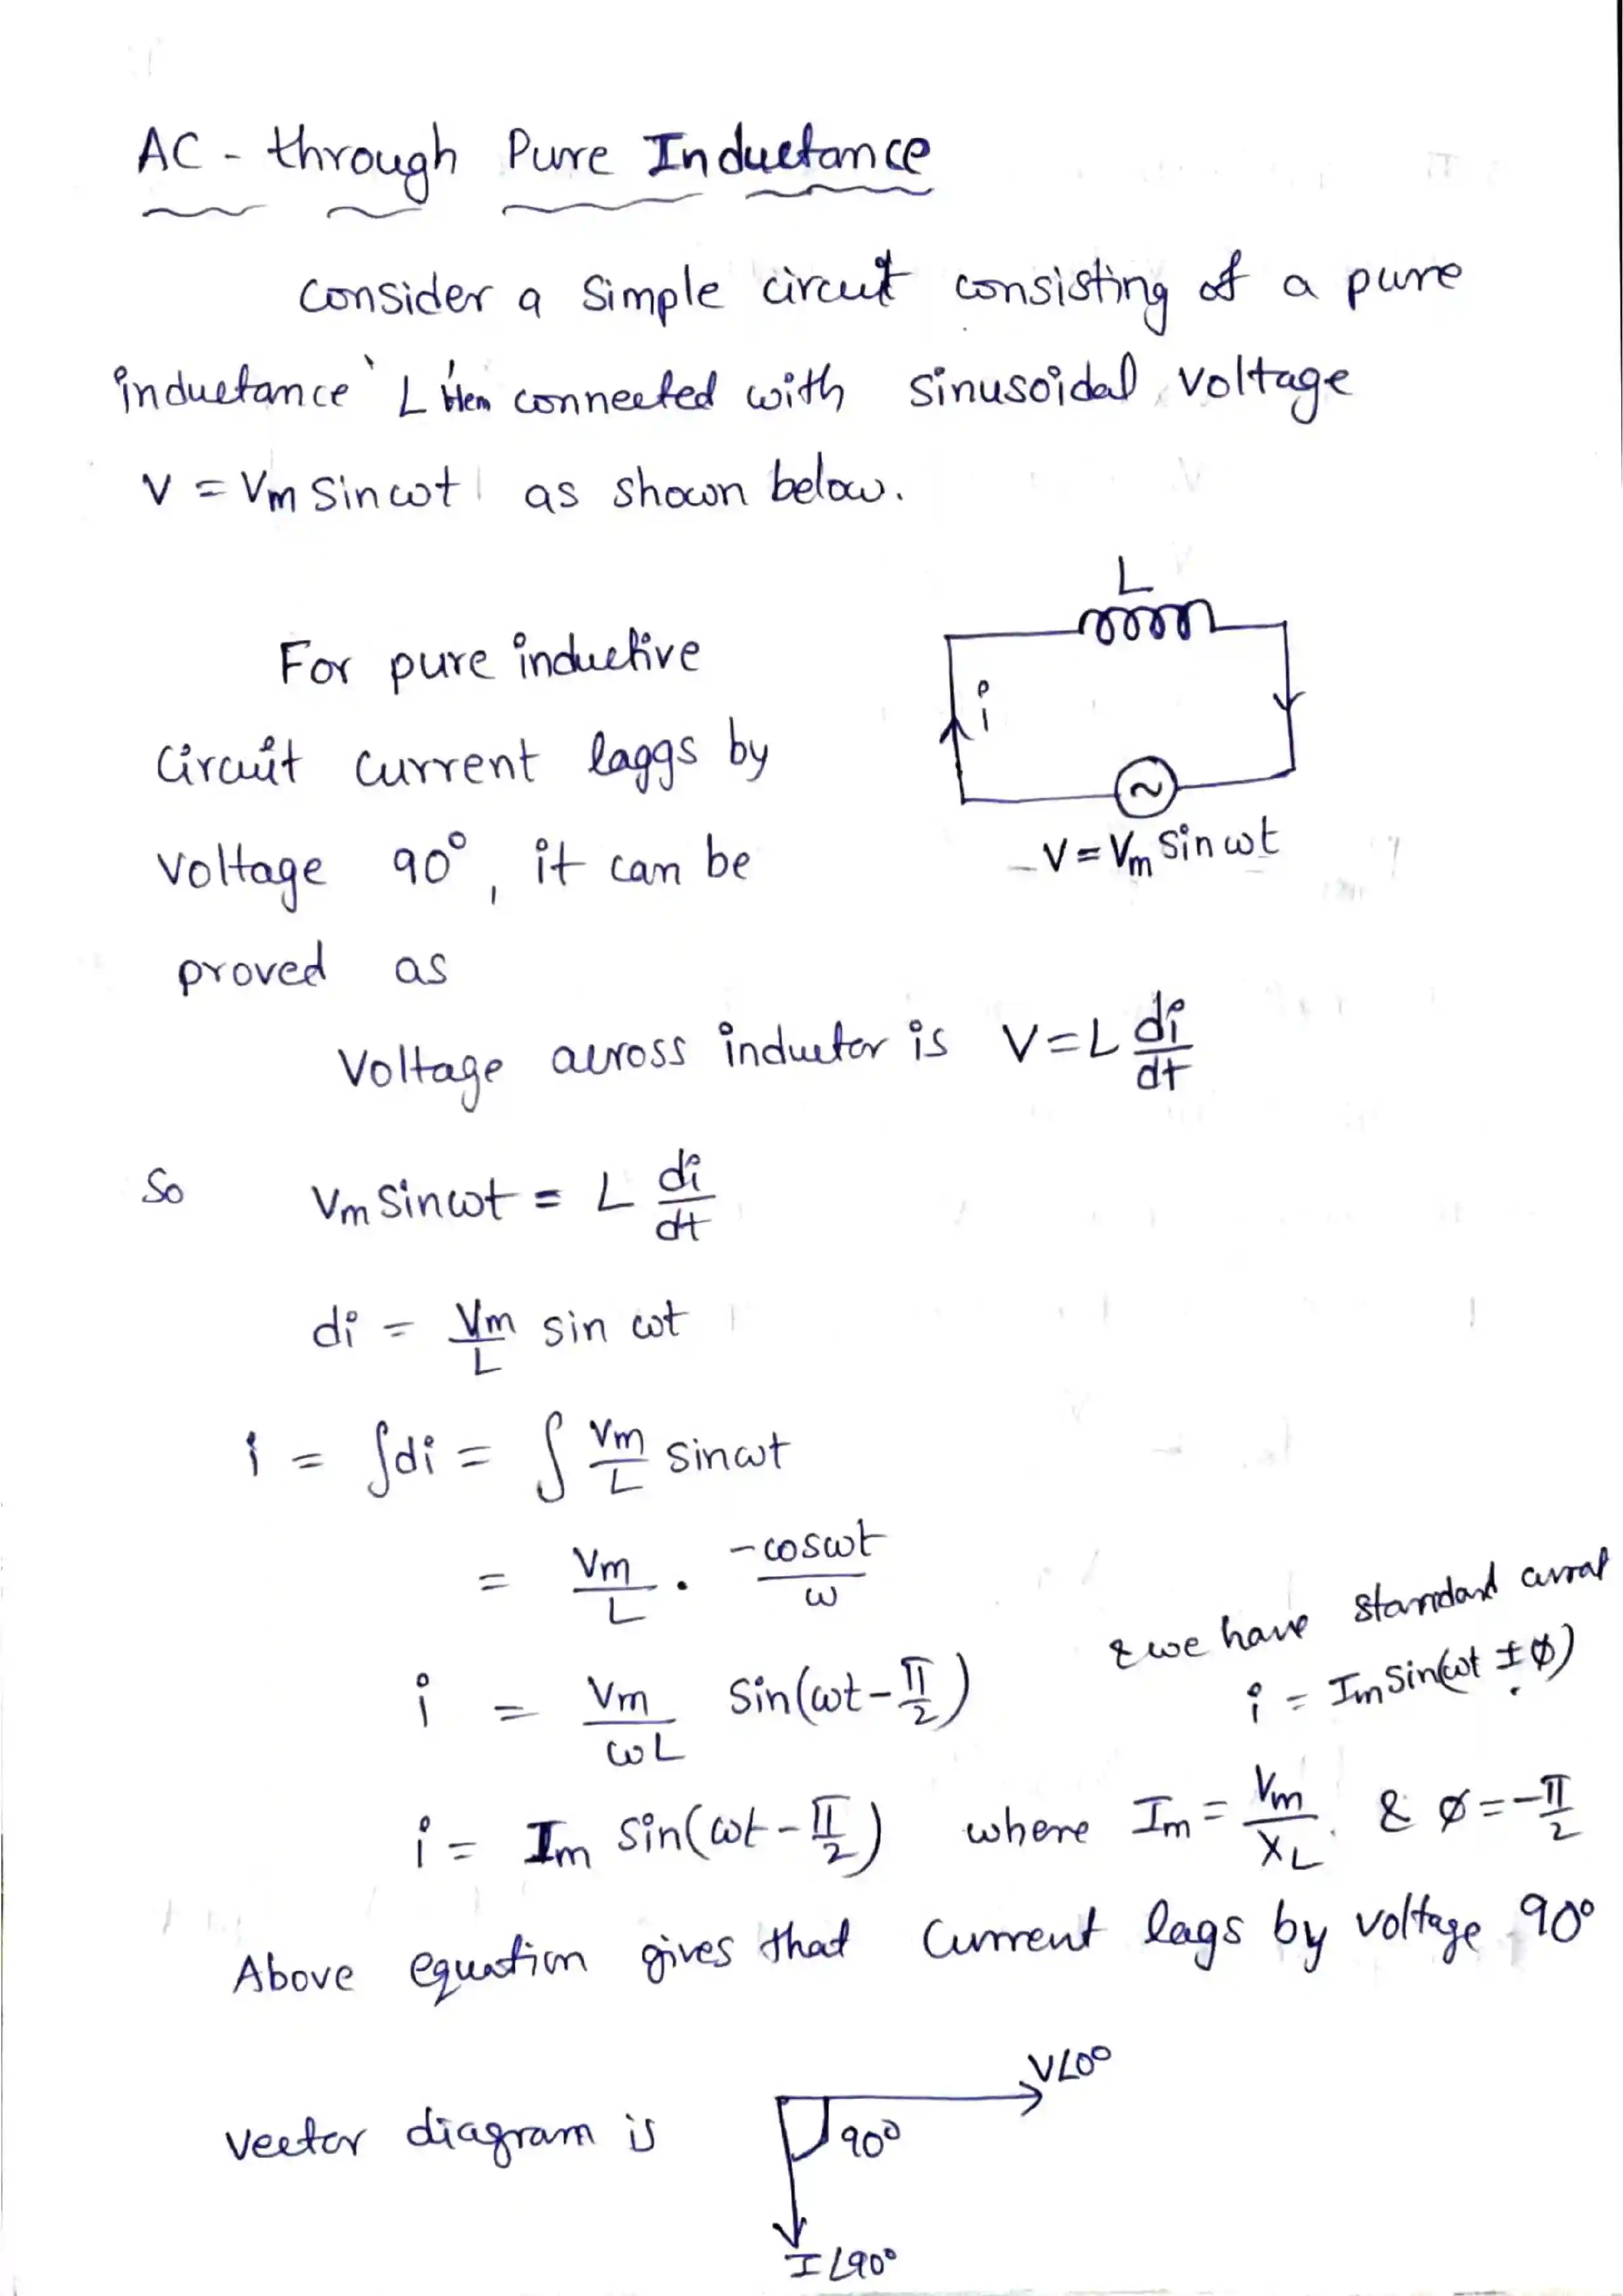 AC - through Pure Inductance
Consider a Simple circuit consisting of a pure
inductance ' L ' Hen connected with sinusoidal voltage
V = Vm Sin ωt as shown below.
L
i
V = Vm Sin ωt
For pure inductive
Circuit Current laggs by
Voltage 90°, it can be
proved as
Voltage across inductor is V = L di/dt
So Vm Sin ωt = L di/dt
di = Vm/L sin ωt
i = ∫di = ∫ Vm/L sin ωt
= Vm/L . -cos ωt/ω
& we have standard
i = Im Sin(ωt ± Ø)
i = Vm/ωL Sin(ωt - π/2)
i = Im Sin(ωt - π/2) where Im = Vm/XL. & Ø = -π/2
Above equation gives that Current lags by voltage 90°
Vector diagram is
V∠0°
90°
I∠90°